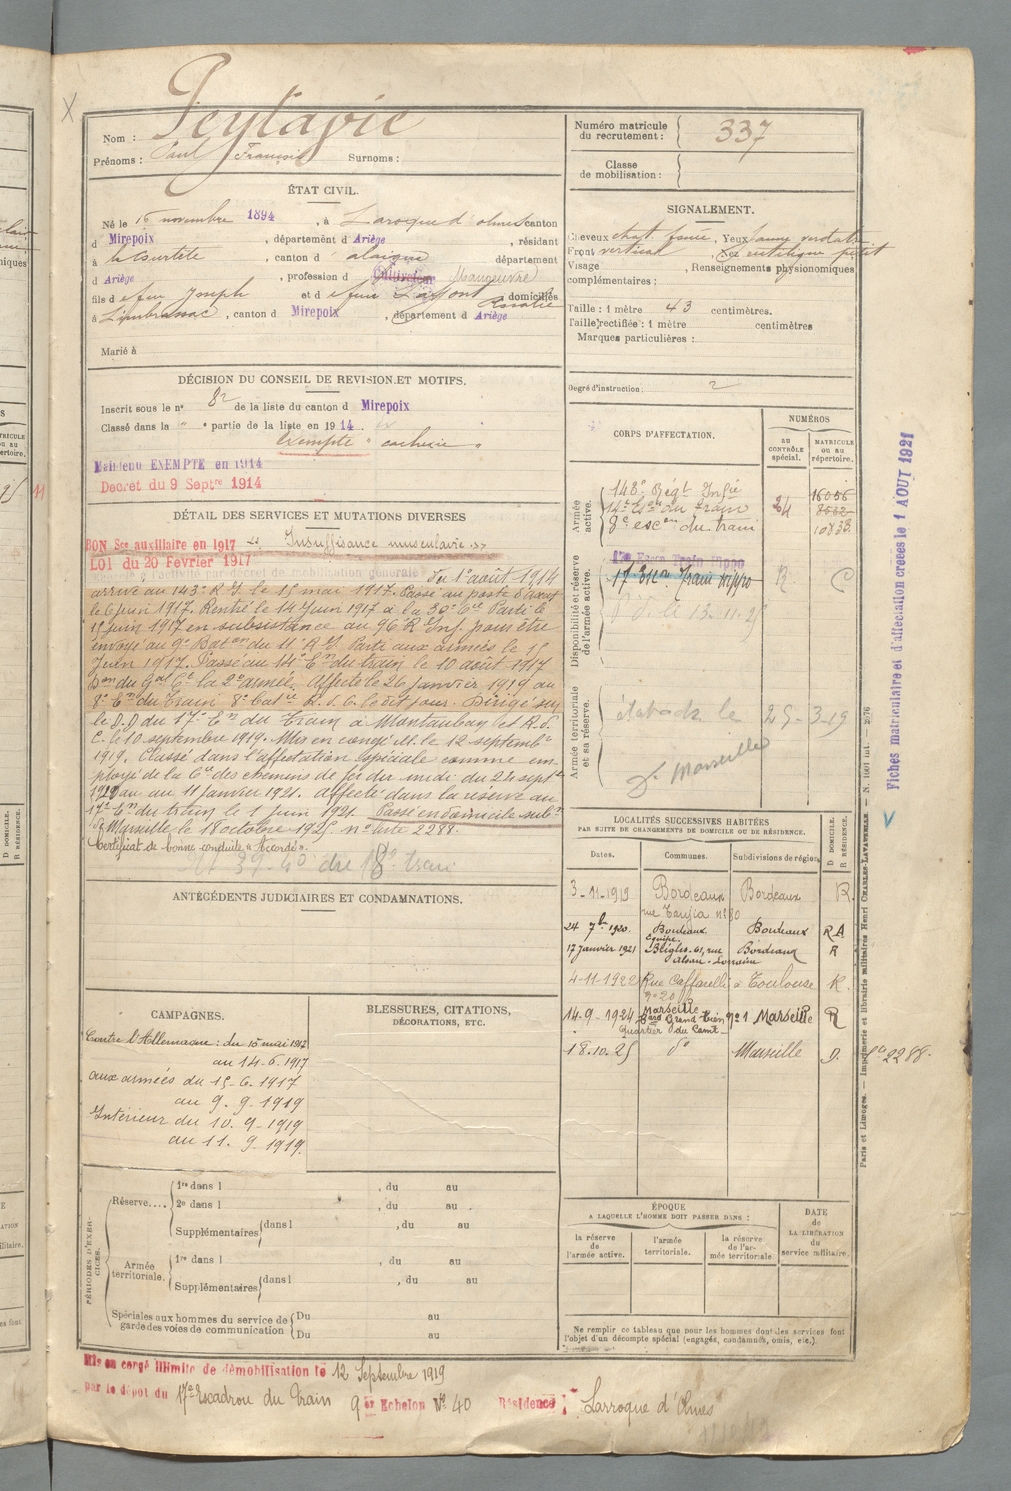 Peytavie
Nom :
Prénoms : Paul François Surnoms :
Numéro matricule du recrutement : 337
Classe de mobilisation :
ÉTAT CIVIL.
Né le 15 novembre 1894, à Laroque d'olmes canton
d Mirepoix, département d Ariège, résidant
à , canton d , département
d Ariège, profession d Cultivateur Manoeuvre
fils d e feu Joseph et d e feu Laffont Rosalie domiciliés
à Limbrassac, canton d Mirepoix, département d Ariège
Marié à
SIGNALEMENT.
Cheveux chat. foncé, Yeux jaune verdatre
Front vertical, Nez rectiligne petit
Visage , Renseignements physionomiques
complémentaires :
Taille : 1 mètre 43 centimètres.
Taille rectifiée : 1 mètre centimètres
Marques particulières :
Degré d'instruction : 2
DÉCISION DU CONSEIL DE REVISION ET MOTIFS.
Inscrit sous le nº 82 de la liste du canton d Mirepoix
Classé dans la " " partie de la liste en 1914.
Exempté " cachexie "
Maintenu EXEMPTÉ en 1914
Décret du 9 Septre 1914
DÉTAIL DES SERVICES ET MUTATIONS DIVERSES
BON Sce auxiliaire en 1917 Insuffisance musculaire
LOI du 20 Février 1917
Rappelé à l'activité par décret de mobilisation générale Du 1er août 1914
arrivé au 143e R.I. le 15 mai 1917. Passé au poste d'
le 6 juin 1917. Rentré le 14 juin 1917 à la 30e Cie Parti le
15 juin 1917 en subsistance au 96e R. Inf. pour être
envoyé au 9e Baton du 11e R.I. Parti aux armées le 15
Juin 1917. Passé au 14e Eon du train le 10 août 1917
Don du Gal Ct la 2e armée. Affecté le 26 janvier 1919 au
8e Eon du Train 8e Batie le dit jour. Dirigé sur
le D.D du 17e Eon du Train à Montauban
C. le 10 septembre 1919. Mis en congé ill. le 12 septembre
1919. Classé dans l'affectation spéciale comme em-
ployé de la Cie des chemins de fer du midi du 24 septbre
1920 au 11 janvier 1921. Affecté dans la réserve au
17e Eon du train le 1 juin 1921. Passé en domicile subn
de Marseille le 18 octobre 1925 nº liste 2288.
Certificat de bonne conduite "Accordé".
39-40 du 18e train
CORPS D'AFFECTATION.
NUMÉROS
au CONTRÔLE spécial.
MATRICULE ou au répertoire.
Armée active.
148e Régt Infie
14e Eon du Train 24 16056 8662
8e escon du train 10838
Disponibilité et réserve de l'armée active.
17e Escon Train Hippo
17 Eon Train Hippo R.
le 13-11-25
Armée territoriale et sa réserve.
le 25-3-19
Marseille
Fiches matriculaire et d'affectation créées le 1 AOUT 1921
ANTÉCÉDENTS JUDICIAIRES ET CONDAMNATIONS.
LOCALITÉS SUCCESSIVES HABITÉES
PAR SUITE DE CHANGEMENTS DE DOMICILE OU DE RÉSIDENCE.
Dates. Communes. Subdivisions de région. D DOMICILE. R RÉSIDENCE.
3-11-1919 Bordeaux Bordeaux R.
24 7bre 1920 Bordeaux Bordeaux RA
17 janvier 1921 Bègles, 61, rue Alsace-Lorraine Bordeaux R
4-11-1922 Rue Caffarelli nº 20 à Toulouse R.
14-9-1924 Marseille nº 1 Marseille R
18.10.25 dº Marseille D. 2288.
CAMPAGNES.
Contre l'Allemagne : du 15 mai 1917
au 14-6-1917
aux armées du 15-6-1917
au 9-9-1919
Intérieur du 10-9-1919
au 11-9-1919.
BLESSURES, CITATIONS,
DÉCORATIONS, ETC.
PÉRIODES D'EXERCICES.
Réserve....
1re dans l , du au
2e dans l , du au
Supplémentaires dans l , du au
Armée territoriale.
1re dans l , du au
Supplémentaires dans l , du au
Spéciales aux hommes du service de garde des voies de communication
Du au
Du au
ÉPOQUE
A LAQUELLE L'HOMME DOIT PASSER DANS :
la réserve de l'armée active.
l'armée territoriale.
la réserve de l'armée territoriale
DATE de LA LIBÉRATION du service militaire.
Ne remplir ce tableau que pour les hommes dont les services font
l'objet d'un décompte spécial (engagés, condamnés, omis, etc.).
Paris et Limoges. — Imprimerie et librairie militaires Henri CHARLES-LAVAUZELLE
Mis en congé illimité de démobilisation le 12 Septembre 1919
par le dépôt du 17e Escadron du Train 9er Echelon Nº 40 Résidence : Larroque d'Olmes